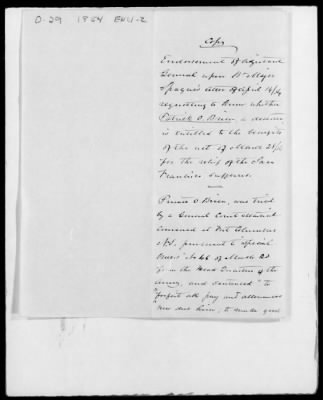 O-29 1854 ENU-2
Copy
Endorsement of Adjutant
General upon Bt Major
Sprague's letter of April 14/54
requesting to know whether
Patrick O. Brien a deserter
is entitled to the benefits
of the act of March 2
for the relief of the San
Francisco sufferers.
Private O. Brien, was tried
by a General Court Martial
convened at Fort Columbus
N.Y., pursuant to "Special
Orders" No 46 of March 23
from the Head Quarters of the
Army, and sentenced "to
"forfeit all pay and allowances
"now due him, to make good